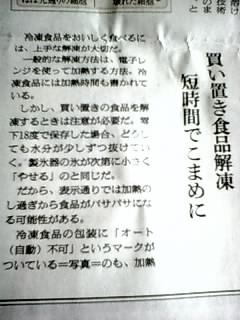 買い置き食品解凍
短時間でこまめに
冷凍食品をおいしく食べるに
は、上手な解凍が大切だ。
一般的な解凍方法は、電子レ
ンジを使って加熱する方法。冷
凍食品には加熱時間も書かれて
いる。
しかし、買い置きの食品を解
凍するときは注意が必要だ。零
下18度で保存した場合、どうし
ても水分が少しずつ抜けてい
く。製氷器の氷が次第に小さく
「やせる」のと同じだ。
だから、表示通りでは加熱の
し過ぎから食品がパサパサにな
る可能性がある。
冷凍食品の包装に「オート
(自動)不可」というマークが
ついている=写真=のも、加熱